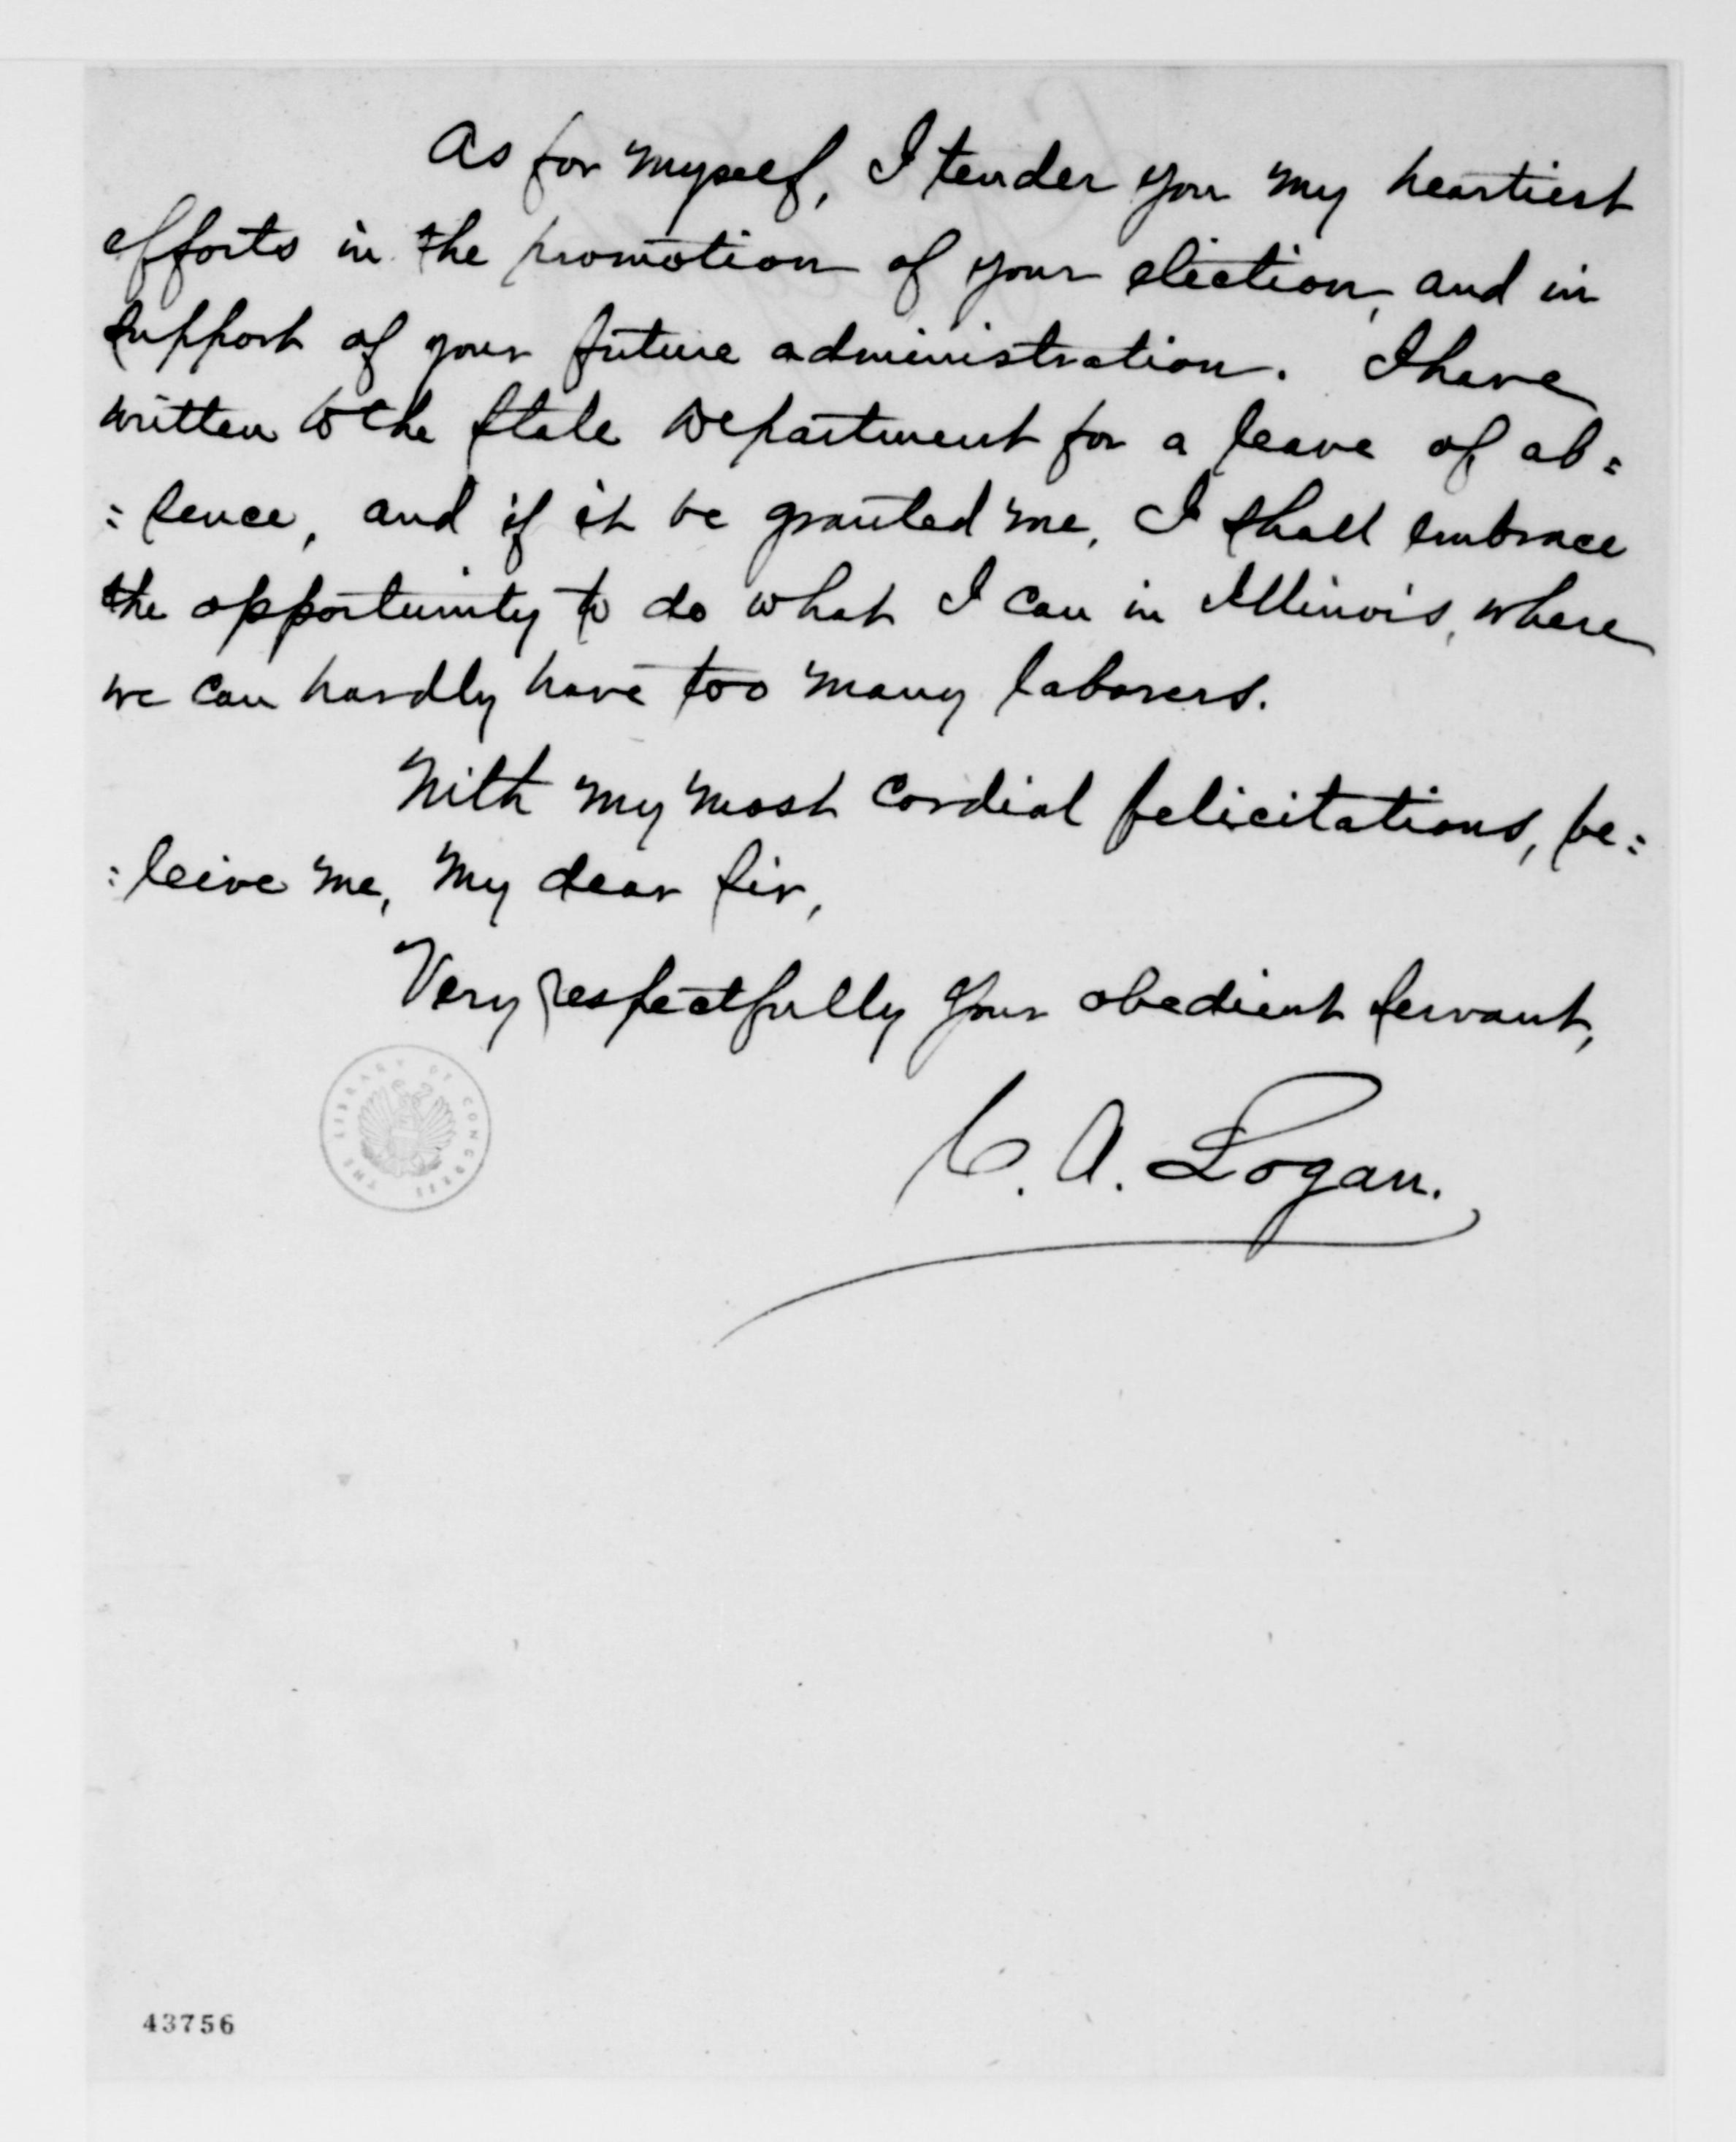 As for myself, I tender you my heartiest
efforts in the promotion of your election, and in
support of your future administration. I have
written to the State Department for a leave of ab=
=sence, and if it be granted me, I shall embrace
the opportunity to do what I can in Illinois, where
we can hardly have too many laborers.
With my most cordial felicitations, be=
=leive me, my dear Sir,
Very respectfully your obedient servant,
THE LIBRARY OF CONGRESS
C. A. Logan.
43756